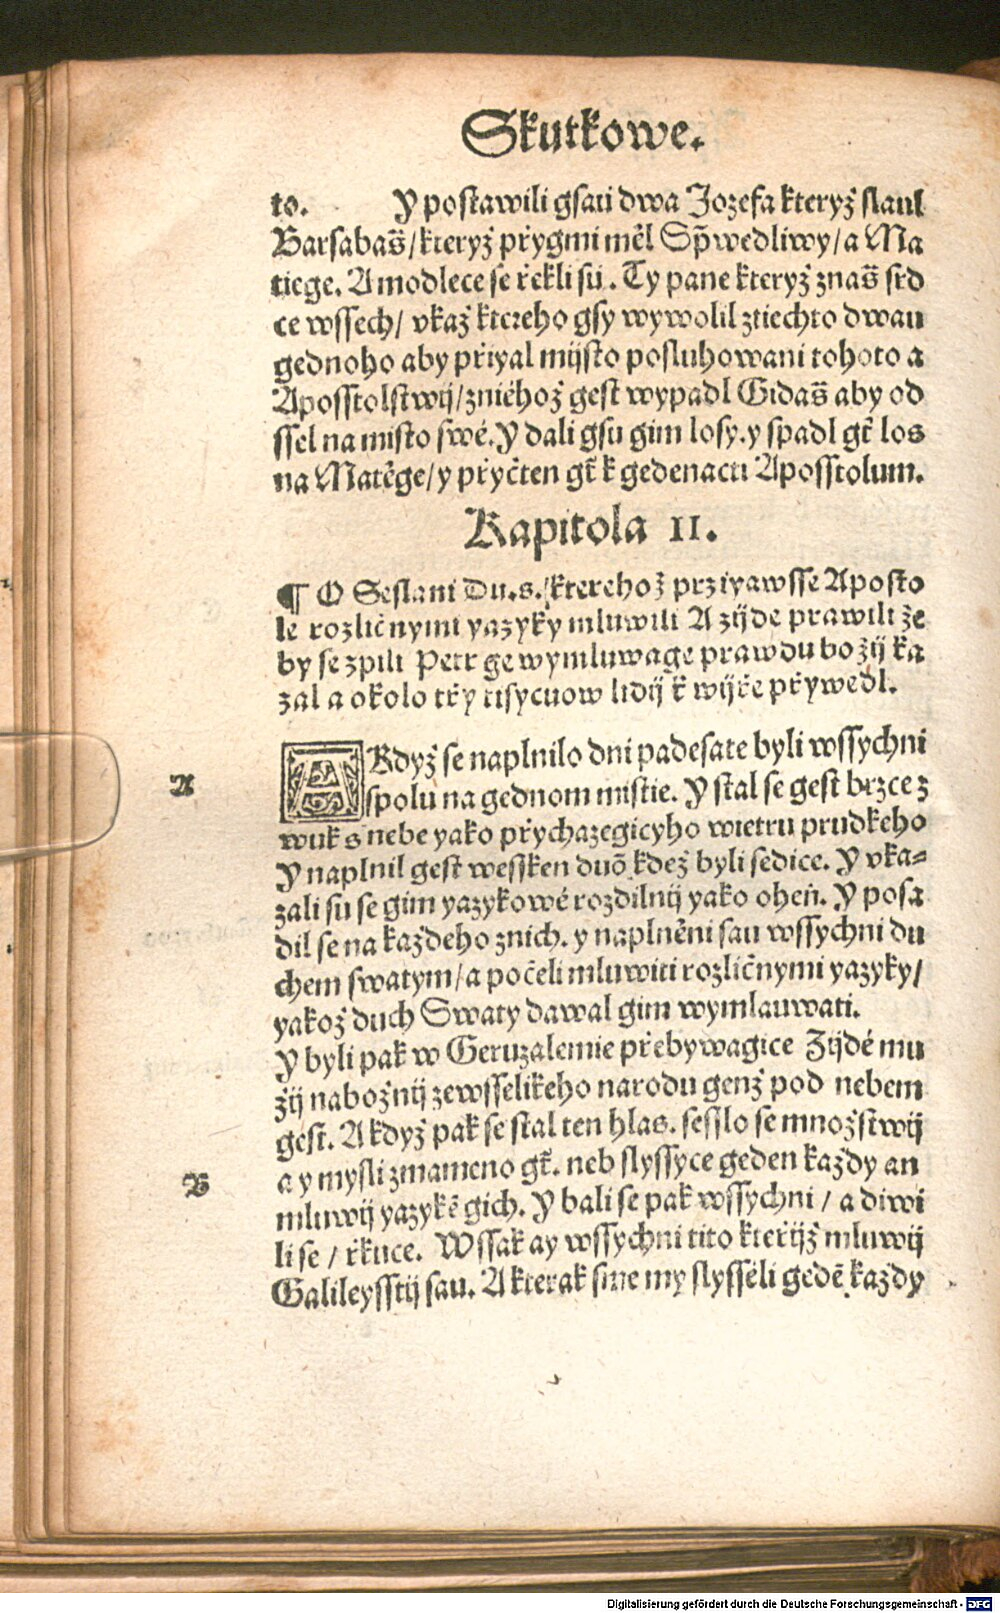 Skutkowe.
to. Y postawili gsau dwa Jozefa kteryž slaul
Barsabaš/ kteryž přygmi měl Sp̃wedliwy/ a Ma
tiege. A modlece se řekli sú. Ty pane kteryž znaš srd
ce wssech/ vkaž kterého gsy wywolil z tiechto dwau
gednoho aby přiyal mijsto posluhowani tohoto a
Aposstolstwij/ zniěhož gest wypadl Gidaš aby od
ssel na misto swé. Y dali gsu gim losy. y spadl gt̃ los
na Matěge/ y přyčten gt̃ k gedenacti Aposstolum.
Kapitola II.
¶ O Seslani Du. s./ kterehož prziyawsse Aposto
le rozličnymi yazyky mluwili A zijde prawili že
by se zpili Petr ge wymluwage prawdu božij ka
zal a okolo třy tisycuow lidij k wijře přywedl.
A
AKdyž se naplnilo dni padesate byli wssychni
spolu na gednom mistie. Y stal se gest brzce z
wuk s nebe yako přychazegicyho wietru prudkeho
Y naplnil gest wessken duõ kdež byli sedice. Y vka=
zali su se gim yazykowé rozdilnij yako oheň. Y posa
dil se na každeho znich. y naplněni sau wssychni du
chem swatym/ a počeli mluwiti rozličnymi yazyky/
yakož duch Swaty dawal gim wymlauwati.
Y byli pak w Geruzalemie přebywagice Zijdé mu
žij nabožnij ze wsselikeho narodu genž pod nebem
gest. A když pak se stal ten hlas. sesslo se množstwij
B
a y mysli zmameno gt̃. neb slyssyce geden každy an
mluwij yazykẽ gich. Y bali se pak wssychni / a diwi
li se / řkuce. Wssak ay wssychni tito kteřijž mluwij
Galileysstij sau. A kterak sme my slysseli gedẽ každy
Digitalisierung gefördert durch die Deutsche Forschungsgemeinschaft - DFG